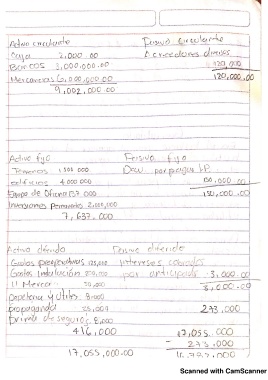 Activo circulante Pasivo circulante
Caja 2,000.00 Acreedores diversos
Bancos 3,000,000.00 120,000
Mercancías 6,000,000.00 120,000.00
9,002,000.00
Activo fijo Pasivo fijo
Terrenos 1 500 000 Doc por pagar LP
edificios 4 000 000 150,000.00
Equipo de Oficina 137 000 150,000.00
Inversiones Permanentes 2,000,000
7,637,000
Activo diferido Pasivo diferido
Gastos preoperativos 125,000 intereses cobrados
Gastos instalación por anticipado 3,000.00
" Mercar 3,000.00
papeleria y utiles 8,000
propaganda 273,000
prima de seguros 8,000
416,000 17,055,000
- 273,000
17,055,000.00
Scanned with CamScanner